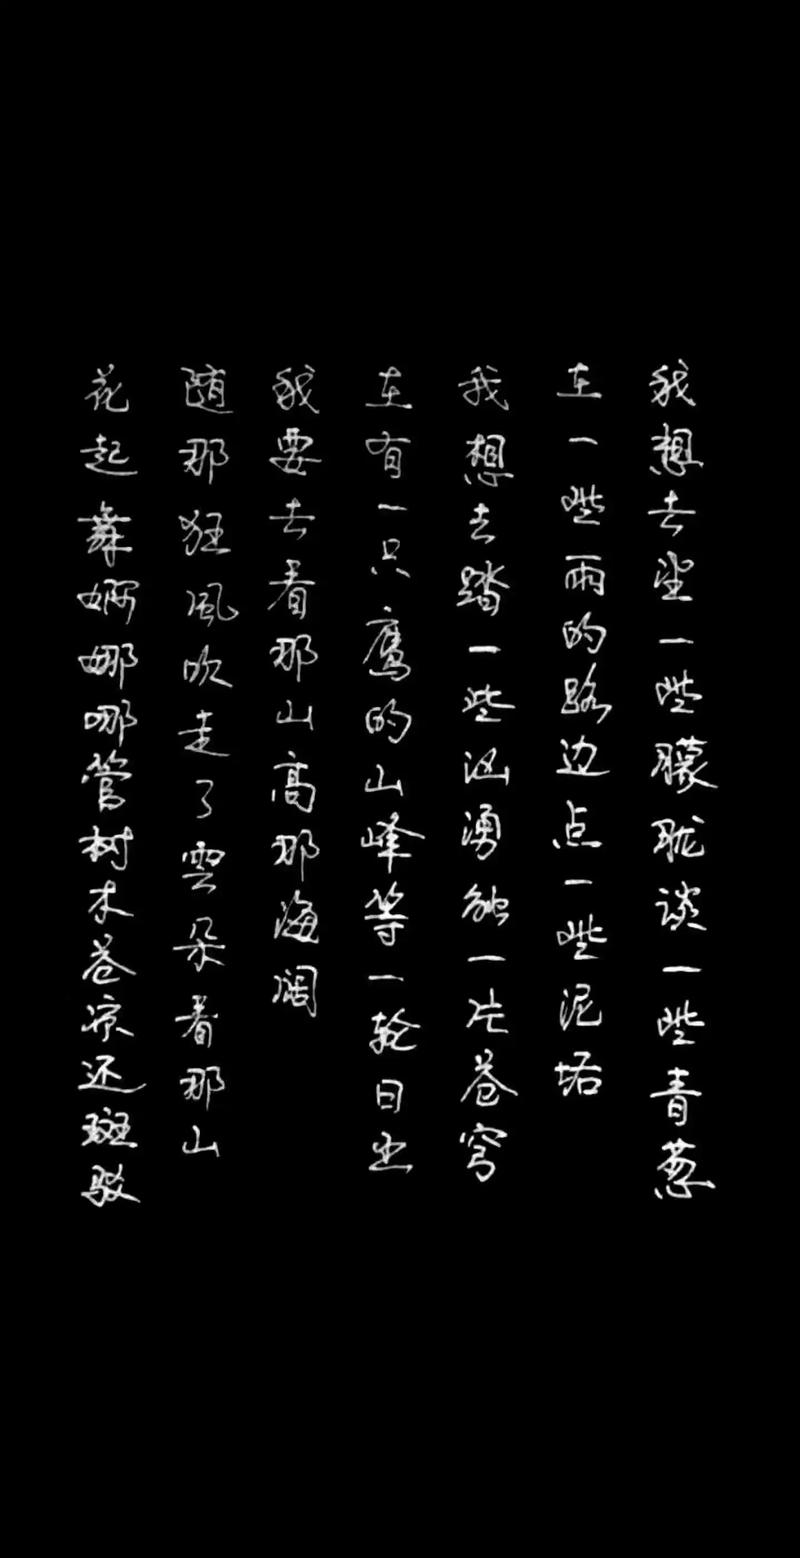 我想去望一些朦胧谈一些青葱
在一些雨的路边点一些泥垢
我想去踏一些汹湧触一片苍穹
在有一只鹰的山峰等一轮日出
我要去看那山高那海阔
随那狂風吹走了雲朵看那山
花起舞婀娜哪管树木苍凉还斑驳